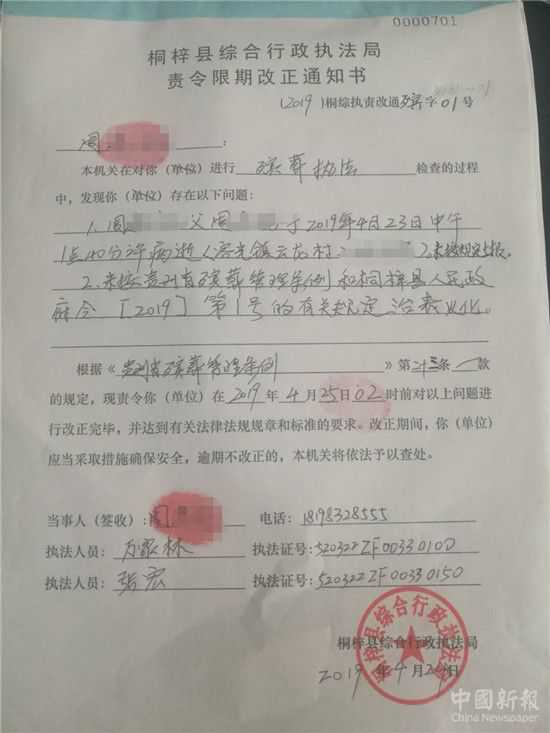 0000701
桐梓县综合行政执法局
责令限期改正通知书
(2019)桐综执责改通殡字01号
周
:
本机关在对你(单位)进行 殡葬执法 检查的过程
中，发现你(单位)存在以下问题：
1.周 父周 于2019年4月23日中午
1点40分许病逝(容光镇云龙村 ),未按规定上报。
2.未按贵州省殡葬管理条例和桐梓县人民政
府令[2019]第1号的有关规定治丧火化。
根据《贵州省殡葬管理条例》第二十三条一款
的规定，现责令你(单位)在2019年4月25日02时前对以上问题进
行改正完毕，并达到有关法律法规规章和标准的要求。改正期间，你(单位)
应当采取措施确保安全，逾期不改正的，本机关将依法予以查处。
当事人(签收):周 电话：18198328555
执法人员：万家林 执法证号:520322ZF00330100
执法人员：张宏 执法证号:520322ZF00330150
桐梓县综合行政执法局
2019年4月24日
桐梓县综合行政执法局
中國新報
China Newspaper